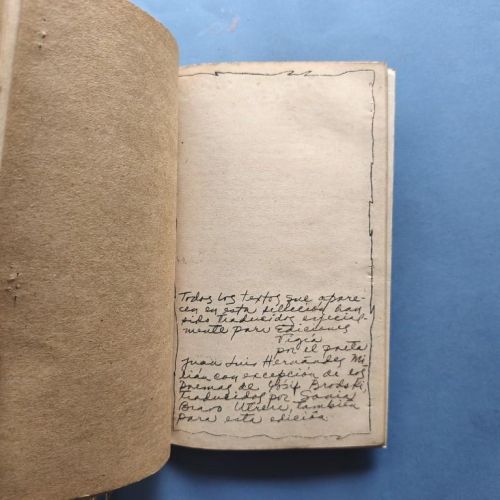 Todos los textos que apare-
cen en esta selección han
sido traducidos especial-
mente para Ediciones
Vigía
por el poeta
Juan Luis Hernández Mi-
lián con excepción de los
poemas de Iósif Brodski,
traducidos por Sonia
Bravo Utrera, también
para esta edición.